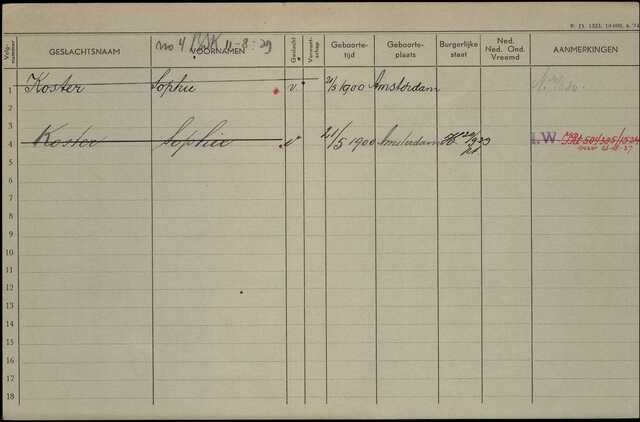 no 4 BSK 11-8-39
Volg-nummer GESLACHTSNAAM VOORNAMEN Geslacht Verwant-schap Geboorte-tijd Geboorte-plaats Burgerlijke staat Ned. Ned. Ond. Vreemd AANMERKINGEN
1 Koster Sophie v. 21/5 1900 Amsterdam
2
3
4 Koster Sophie v 21/5 1900 Amsterdam 1923 I.W
5
6
7
8
9
10
11
12
13
14
15
16
17
18